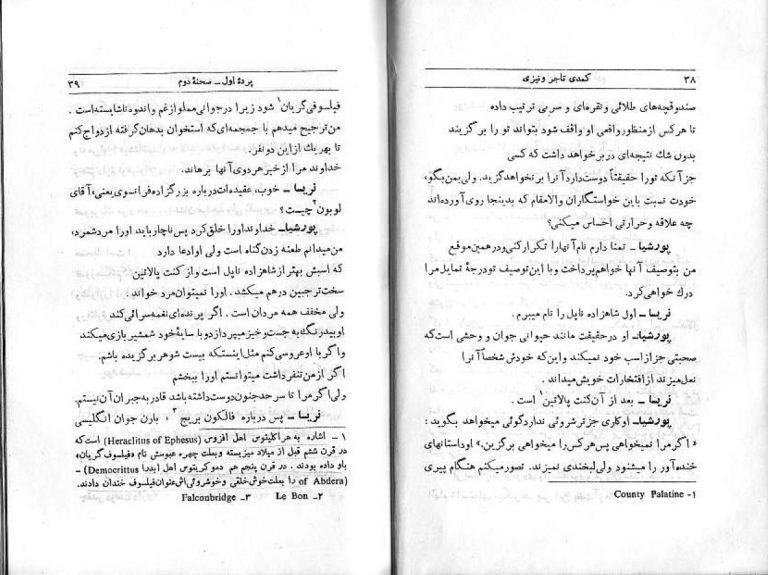 ۳۸
کمدی تاجر ونیزی
صندوقچه‌های طلائی و نقره‌ای و سربی ترتیب داده
تا هرکس از منظور واقعی او واقف شود بتواند تو را برگزیند
بدون شك نتیجه‌ای دربرخواهد داشت که کسی
جز آنکه تورا حقیقتاً دوست دارد آنرا برنخواهدگزید. ولی بمن بگو،
خودت نسبت باین خواستگاران والامقام که بدینجا روی آورده‌اند
چه علاقه و حرارتی احساس میکنی؟
پورشیا ـ تمنا دارم نام آنها را تکرار کنی و در همین موقع
من بتوصیف آنها خواهم پرداخت و با این توصیف تو درجهٔ تمایل مرا
درك خواهی کرد.
نریسا ـ اول شاهزاده ناپل را نام میبرم .
پورشیا ـ او درحقیقت مانند حیوانی جوان و وحشی است که
صحبتی جز از اسب خود نمیکند و این که خودش شخصاً آنرا
نعل میزند از افتخارات خویش میداند .
نریسا ـ بعد از آن کنت پالاتین۱ است .
پورشیا ـ او کاری جز ترشروئی ندارد گوئی میخواهد بگوید :
«اگر مرا نمیخواهی پس هرکس را میخواهی برگزین.» او داستانهای
خنده‌آور را میشنود ولی لبخندی نمیزند. تصور میکنم هنگام پیری
۱- County Palatine
پردهٔ اول ـ صحنهٔ دوم
۳۹
فیلسوفی گریان۱ شود زیرا در جوانی مملو از غم و اندوه ناشایسته است .
من ترجیح میدهم با جمجمه‌ای که استخوان بدهان گرفته ازدواج کنم
تا بهر یك از این دو نفر.
خداوند مرا از خیر هر دوی آنها برهاند.
نریسا ـ خوب، عقیده‌ات درباره بزرگزاده فرانسوی یعنی، آقای
لوبون۲ چیست؟
پورشیا ـ خداوند او را خلق کرد پس ناچار باید او را مرد شمرد،
من میدانم طعنه زدن گناه است ولی او ادعا دارد
که اسبش بهتر از شاهزاده ناپل است و از کنت پالاتین
سخت‌تر جبین درهم میکشد . او را نمیتوان مرد خواند :
ولی مخفف همه مردان است . اگر پرنده‌ای نغمه‌سرائی کند
او بیدرنگ به جست و خیز میپردازد و با سایهٔ خود شمشیر بازی میکند
و اگر با او عروسی کنم مثل اینستکه بیست شوهر برگزیده باشم.
اگر از من تنفر داشت میتوانستم او را ببخشم
ولی اگر مرا تا سرحد جنون دوست داشته باشد قادر به جبران آن نیستم.
نریسا ـ پس درباره فالکون بریج۳ ، بارن جوان انگلیسی
۱ ـ اشاره به هراکلیتوس اهل افزوس (Heraclitus of Ephesus) است که
در قرن ششم قبل از میلاد میزیسته و بعلت چهره عبوسش نام «فیلسوف گریان»
باو داده بودند . در قرن پنجم هم دموکریتوس اهل ابدرا (Democrittus ـ
of Abdera) را بعلت خوش خلقی و خوشروئی‌اش عنوان فیلسوف خندان دادند.
۲ـ Le Bon ۳ـ Falconbridge